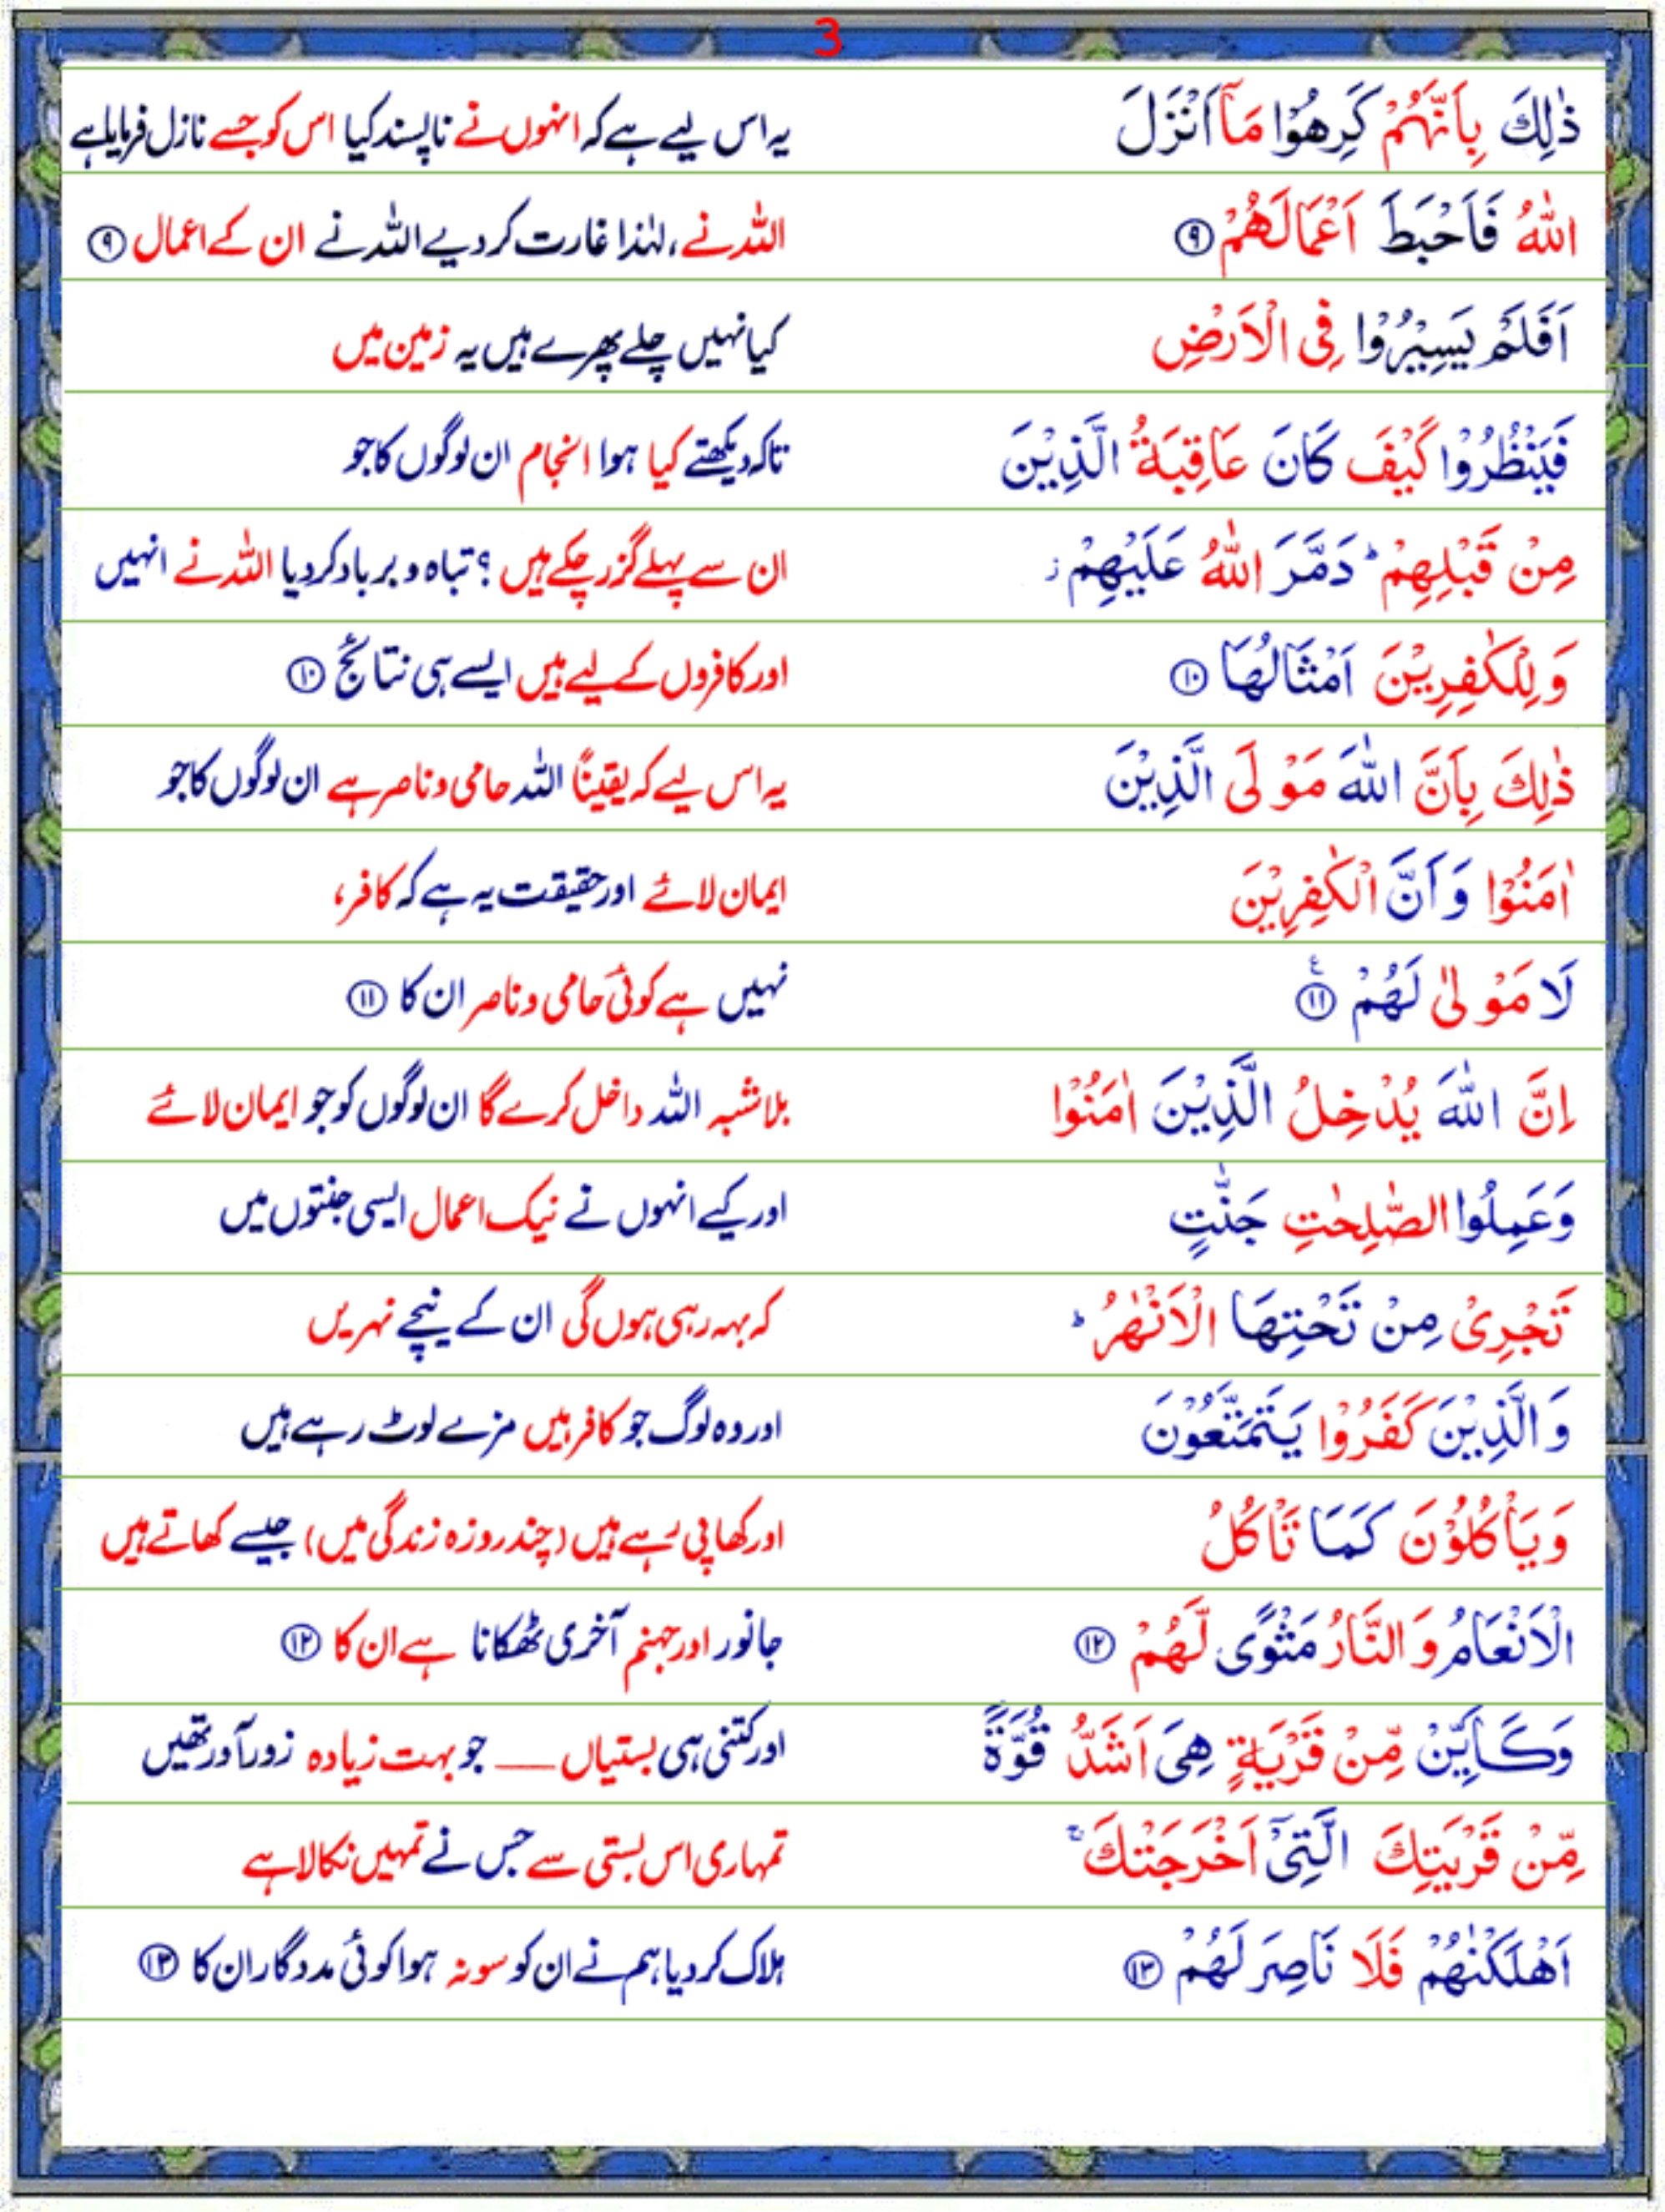 3
ذٰلِكَ بِاَنَّهُمْ كَرِهُوْا مَاۤ اَنْزَلَ یہ اس لیے ہے کہ انہوں نے ناپسند کیا اس کو جسے نازل فرمایا ہے
اللّٰهُ فَاَحْبَطَ اَعْمَالَهُمْ ۹ اللہ نے، لہٰذا غارت کر دیے اللہ نے ان کے اعمال ۹
اَفَلَمْ يَسِيْرُوْا فِى الْاَرْضِ کیا نہیں چلے پھرے ہیں یہ زمین میں
فَيَنْظُرُوْا كَيْفَ كَانَ عَاقِبَةُ الَّذِيْنَ تاکہ دیکھتے کیا ہوا انجام ان لوگوں کا جو
مِنْ قَبْلِهِمْ ؕ دَمَّرَ اللّٰهُ عَلَيْهِمْ ز ان سے پہلے گزر چکے ہیں ؟ تباہ و برباد کر دیا اللہ نے انہیں
وَلِلْكٰفِرِيْنَ اَمْثَالُهَا ۱۰ اور کافروں کے لیے ہیں ایسے ہی نتائج ۱۰
ذٰلِكَ بِاَنَّ اللّٰهَ مَوْلَى الَّذِيْنَ یہ اس لیے کہ یقیناً اللہ حامی و ناصر ہے ان لوگوں کا جو
اٰمَنُوْا وَاَنَّ الْكٰفِرِيْنَ ایمان لائے اور حقیقت یہ ہے کہ کافر،
لَا مَوْلٰى لَهُمْ ۱۱ ع نہیں ہے کوئی حامی و ناصر ان کا ۱۱
اِنَّ اللّٰهَ يُدْخِلُ الَّذِيْنَ اٰمَنُوْا بلاشبہ اللہ داخل کرے گا ان لوگوں کو جو ایمان لائے
وَعَمِلُوا الصّٰلِحٰتِ جَنّٰتٍ اور کیے انہوں نے نیک اعمال ایسی جنتوں میں
تَجْرِىْ مِنْ تَحْتِهَا الْاَنْهٰرُ ؕ کہ بہہ رہی ہوں گی ان کے نیچے نہریں
وَالَّذِيْنَ كَفَرُوْا يَتَمَتَّعُوْنَ اور وہ لوگ جو کافر ہیں مزے لوٹ رہے ہیں
وَيَاْكُلُوْنَ كَمَا تَاْكُلُ اور کھا پی رہے ہیں (چند روزہ زندگی میں) جیسے کھاتے ہیں
الْاَنْعَامُ وَالنَّارُ مَثْوًى لَّهُمْ ۱۲ جانور اور جہنم آخری ٹھکانا ہے ان کا ۱۲
وَكَاَيِّنْ مِّنْ قَرْيَةٍ هِىَ اَشَدُّ قُوَّةً اور کتنی ہی بستیاں ــــ جو بہت زیادہ زور آور تھیں
مِّنْ قَرْيَتِكَ الَّتِىْۤ اَخْرَجَتْكَ ۚ تمہاری اس بستی سے جس نے تمہیں نکالا ہے
اَهْلَكْنٰهُمْ فَلَا نَاصِرَ لَهُمْ ۱۳ ہلاک کر دیا ہم نے ان کو سو نہ ہوا کوئی مددگار ان کا ۱۳